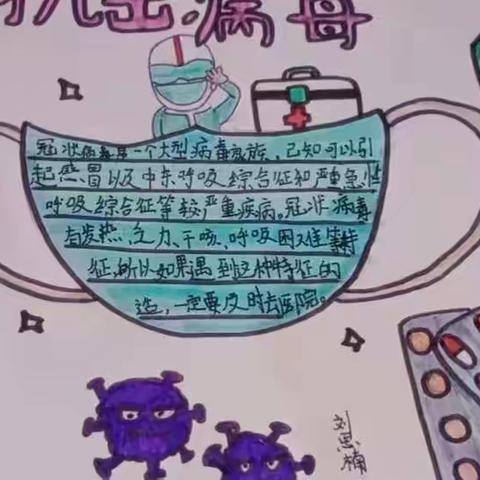 抗击病毒
冠状病毒是一个大型病毒家族，已知可以引
起感冒以及中东呼吸综合征和严重急性
呼吸综合征等较严重疾病。冠状病毒
有发热、乏力、干咳、呼吸困难等特
征，所以如果遇到这种特征的
造，一定要及时去医院。
刘思楠